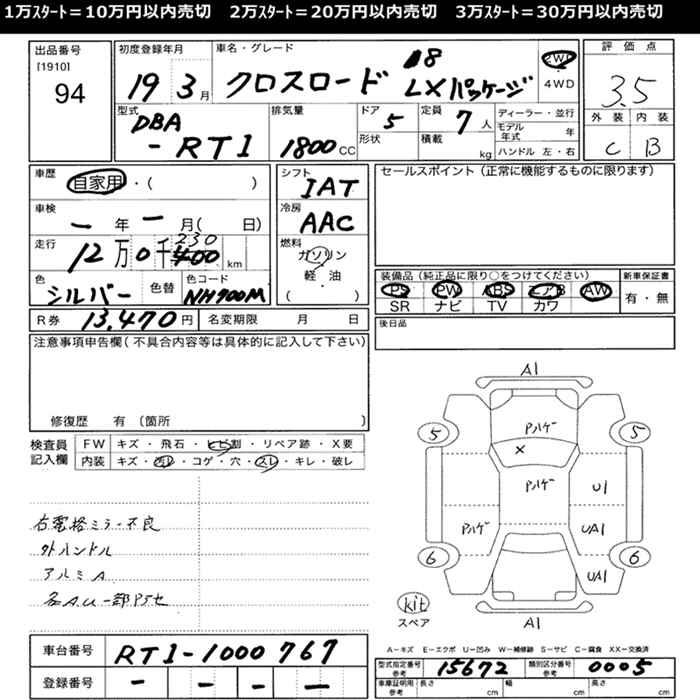 1万ｽﾀｰﾄ＝10万円以内売切　2万ｽﾀｰﾄ＝20万円以内売切　3万ｽﾀｰﾄ＝30万円以内売切
出品番号
[1910]
94
初度登録年月
19 3月
車名・グレード
クロスロード 18 LXパッケージ
2WD
・4WD
評価点
3.5
外装 内装
C B
型式
DBA
-RT1
排気量
1800cc
ドア
5
形状
定員
7人
積載
kg
ディーラー・並行
モデル年式 年
ハンドル 左・右
車歴
自家用・( )
車検
ー年ー月( 日)
走行
12万0千400km
230
色
シルバー
色替
色コード
NH700M
R券 13,470円
名変期限 月 日
シフト
IAT
冷房
AAC
燃料
ガソリン
軽・油
( )
セールスポイント (正常に機能するものに限ります)
装備品 (純正品に限り○をつけてください)
PS PW ABS エアB AW
SR ナビ TV カワ
新車保証書
有・無
後日品
注意事項申告欄 (不具合内容等は具体的に記入して下さい)
修復歴 有 (箇所 )
検査員記入欄
FW キズ・飛石・ヒビ割・リペア跡・X要
内装 キズ・汚レ・コゲ・穴・スレ・キレ・破レ
右電格ミラー不良
外ハンドル
アルミA
各A.U一部P済
A1
Pハゲ
5
5
X
Pハゲ
U1
Pハゲ
UA1
6
6
UA1
kit
スペア
A1
A－キズ E－エクボ U－凹み W－補修跡 S－サビ C－腐食 XX－交換済
車台番号 RT1-1000767
登録番号 ー ー ー ー
型式指定番号 参考 15672
類別区分番号 参考 0005
車庫証明用 参考 長さ cm 幅 cm 高さ cm